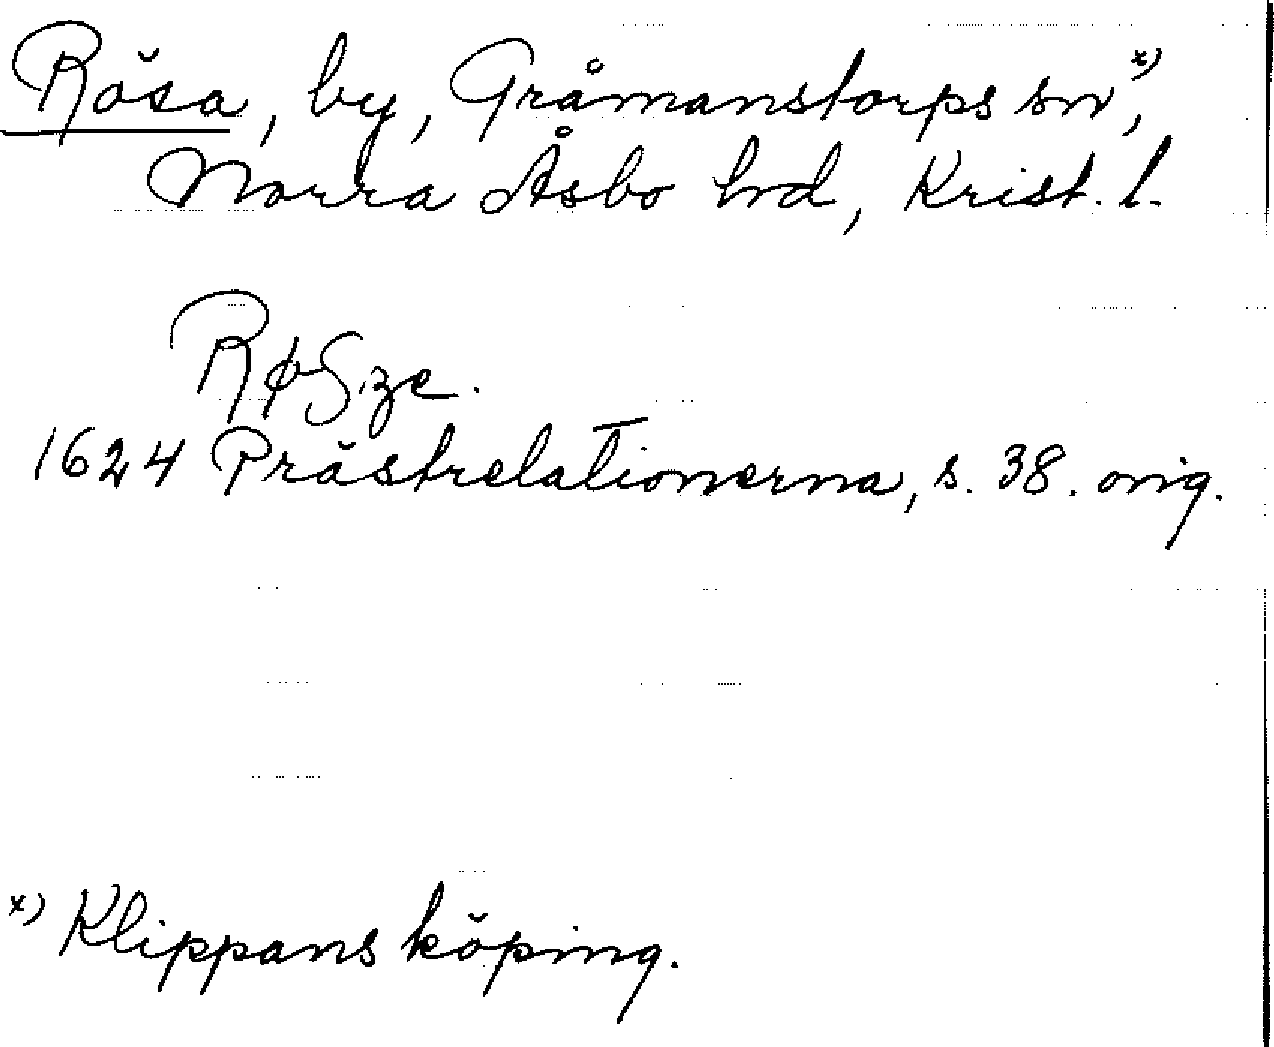 Rösa, by, Gråmanstorps sn x),
Norra Åsbo hrd, Krist. l.
RøSze.
1624 Prästrelationerna, s. 38. orig.
x) Klippans köping.